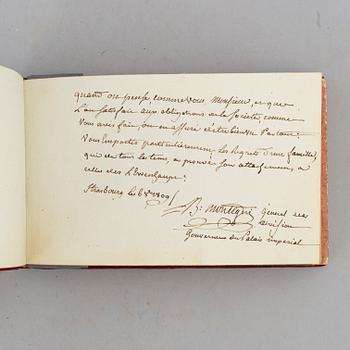 quand on pense, comme vous, Monsieur, et que
l'on satisfait aux obligations de la Société, comme
Vous avez fait, on est assuré d'être bien vu Partout:
Vous emportez particulièrement les regrets d'une famille,
qui de tous les tems, a prouvé son attachement, a
celle des
Strasbourg le 6 1809
B. Montigny général de
division
Gouverneur du Palais imperial